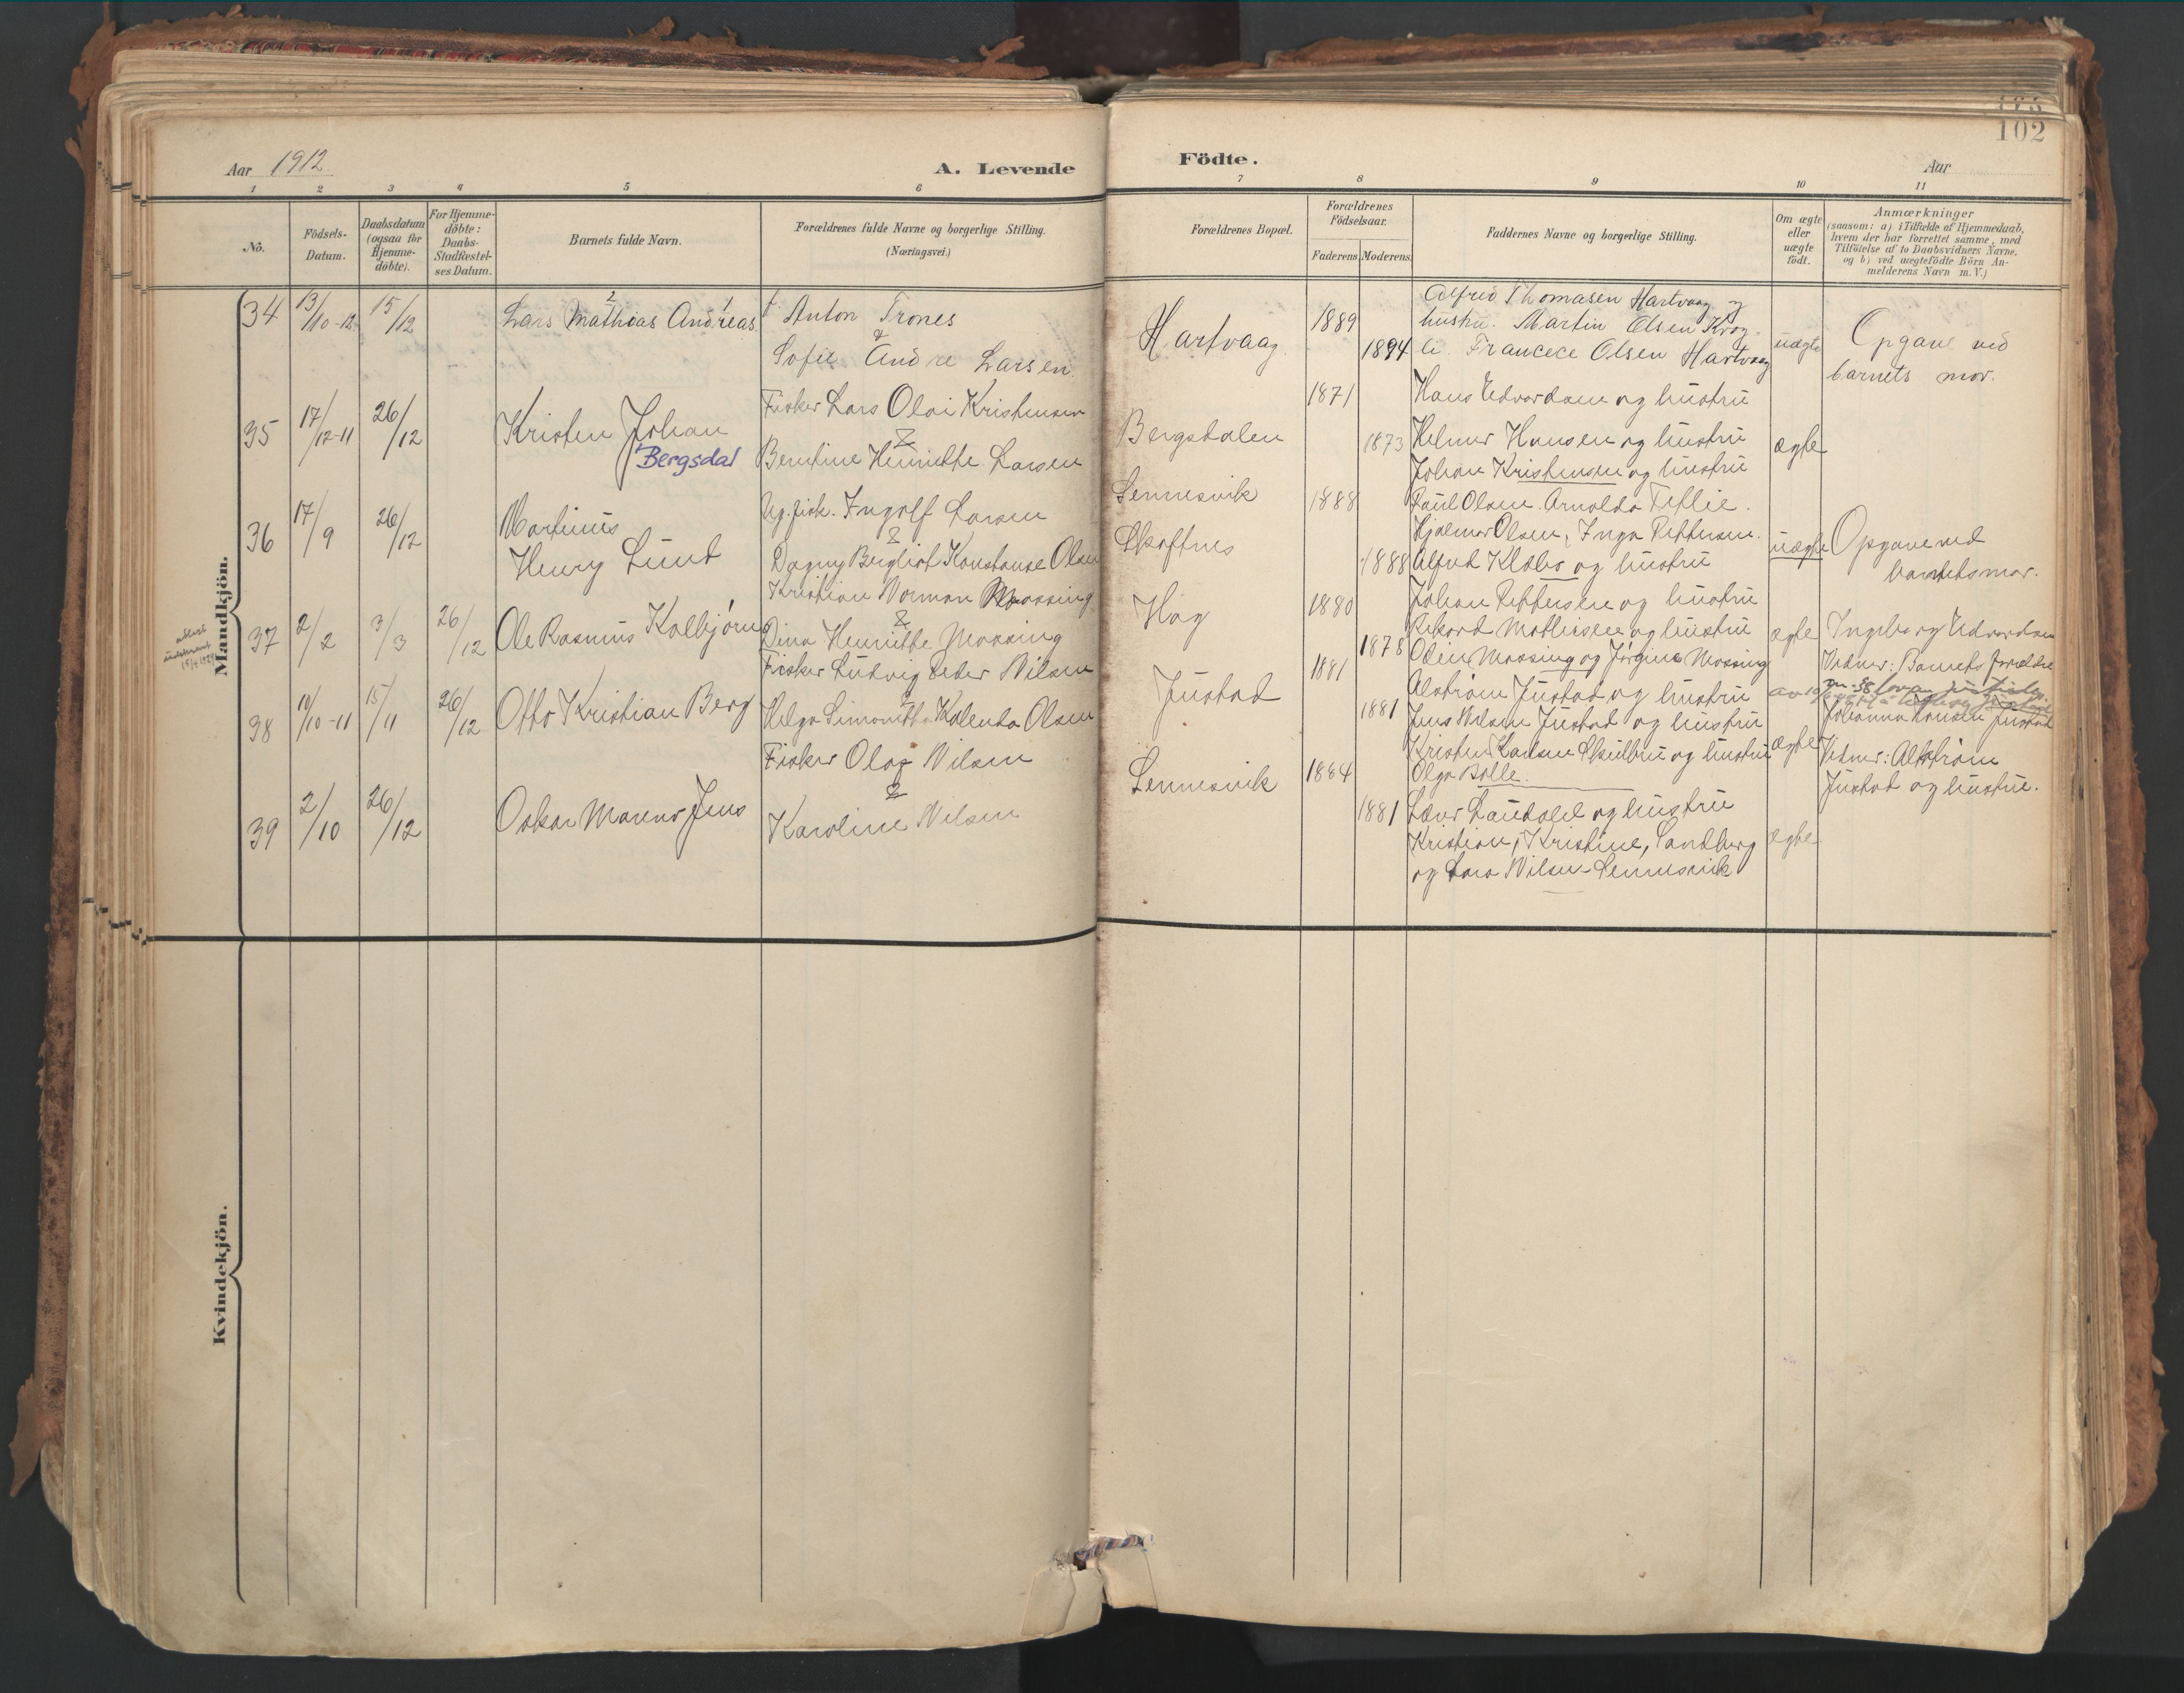 102
Aar 1912
A. Levende
Födte.
Aar
1 2 3 4 5 6 7 8 9 10 11
Nö.
Födsels-
Datum.
Daabsdatum
(ogsaa for
Hjemme-
döbte).
For Hjemme-
döbte:
Daabs-
Stadfæstel-
ses Datum.
Barnets fulde Navn.
Forældrenes fulde Navne og borgerlige Stilling.
(Næringsvei.)
Forældrenes Bopæl.
Forældrenes
Födselsaar.
Faderens
Moderens
Faddernes Navne og borgerlige Stilling.
Om ægte
eller
uægte
födt.
Anmærkninger
(saasom: a) i Tilfælde af Hjemmedaab,
hvem der har forrettet samme, med
Tilföielse af to Daabsvidners Navne,
og b) ved uægtefödte Börn An-
melderens Navn m. V.)
Mandkjön.
34 13/10-12 15/12
Lars Mathias Andreas
Anton Trones
&
Sofie Andre Larsen
Hartvaag
1889
1894
Alfred Thomasen Hartvaag og
hustru. Martin Olsen Krog-
li. Francece Olsen Hartvaag
uægte
Opgave ved
barnets mor.
35 17/12-11 26/12
Kristen Johan
Bergsdal
Fisker Lars Olai Kristensen
&
Berntine Henriette Larsen
Bergsdalen
1871
1873
Hans Edvardsen og hustru
Helmer Hansen og hustru
Johan Kristensen og hustru
ægte
36 17/9 26/12
Martinus
Henry Lund
Ug. fisk. Ingolf Larsen
&
Dagny Bergliot Konstanse Olsen
Sennesvik
Skaftnes
1888
1888
Paul Olsen. Arnolda Teflie.
Hjalmar Olsen, Inga Pettersen.
Alfred Klæbo og hustru
uægte
Opgave ved
barnets mor.
37 2/2 3/3 26/12
Ole Rasmus Kolbjørn
Kristian Norman Moasing
&
Dina Henriette Moasing
Hag
1880
1878
Johan Pettersen og hustru
Rikard Mathisen og hustru
Odin Moasing og Jørgine Moasing
ægte
Ingeborg Edvardsen
Vidner: Barnets forældre
38 10/10-11 15/11 26/12
Otto Kristian Berg
Fisker Ludvig Peder Nilsen
&
Helga Simonette Kalenda Olsen
Justad
1881
1881
Alstrøm Justad og hustru
Jens Nilsen Justad og hustru
Kristen Karlsen Skulbru og hustru
Olga Bolle.
ægte
Johanna Hansen Justad
Vidner: Alstrøm
Justad og hustru.
39 2/10 26/12
Oskar Marenus Jens
Fisker Olaf Nilsen
&
Karoline Nilsen
Sennesvik
1884
1881
Hustru og hustru
Kristian, Kristine, Sandberg
og Lara Nilsen-Sennesvik
ægte
Kvindekjön.